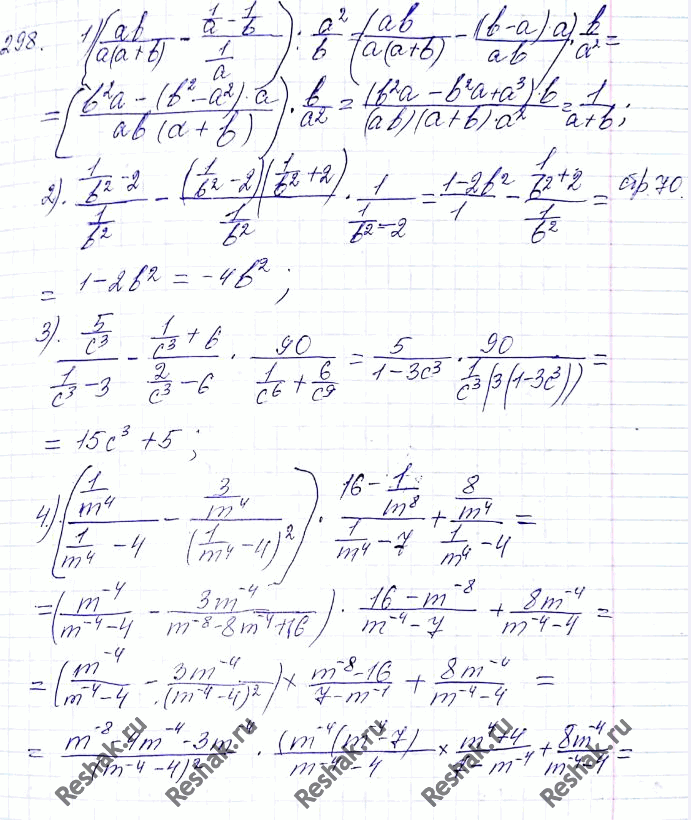 298. 1) (ab/(a(a+b)) - (1/a - 1/b)/(1/a)) : a²/b = (ab/(a(a+b)) - ((b-a)a)/(ab)) · b/a² =
= ((b²a - (b²-a²)·a)/(ab(a+b))) · b/a² = ((b²a - b²a + a³)·b)/((ab)(a+b)·a²) = 1/(a+b);
2). (1/b² - 2)/(1/b²) - ((1/b² - 2)(1/b² + 2))/(1/b²) · 1/(1/b² - 2) = (1-2b²)/1 - (1/b² + 2)/(1/b²) = стр. 70.
= 1-2b² = -4b²;
3). (5/c³)/(1/c³ - 3) - (1/c³ + 6)/(2/c³ - 6) · 90/(1/c⁶ + 6/c⁹) = 5/(1-3c³) · 90/(1/c³(3(1-3c³))) =
= 15c³ + 5;
4). ((1/m⁴)/(1/m⁴ - 4) - (3/m⁴)/(1/m⁴ - 4)²) · (16 - 1/m⁸)/(1/m⁴ - 7) + (8/m⁴)/(1/m⁴ - 4) =
= (m⁻⁴/(m⁻⁴-4) - 3m⁻⁴/(m⁻⁸-8m⁻⁴+16)) · (16-m⁻⁸)/(m⁻⁴-7) + 8m⁻⁴/(m⁻⁴-4) =
= (m⁻⁴/(m⁻⁴-4) - 3m⁻⁴/(m⁻⁴-4)²) × (m⁻⁸-16)/(7-m⁻¹) + 8m⁻⁴/(m⁻⁴-4) =
= (m⁻⁸-4m⁻⁴-3m⁻⁴)/(m⁻⁴-4)² · (m⁻⁴(m⁻⁴-7)/(m⁻⁴-4) × (m⁴+4)/(7-m⁻⁴) + 8m⁻⁴/(m⁻⁴-4) =
Reshak.ru Reshak.ru Reshak.ru Reshak.ru Reshak.ru